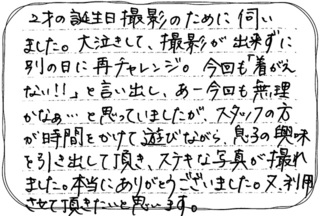 2才の誕生日撮影のために伺い
ました。大泣きして、撮影が出来ずに
別の日に再チャレンジ。今回も「着がえ
ない!!」と言い出し、あー今回も無理
かなぁ…と思っていましたが、スタッフの方
が時間をかけて遊びながら、息子の興味
を引き出して頂き、ステキな写真が撮れ
ました。本当にありがとうございました。又、利用
させて頂きたいと思います。